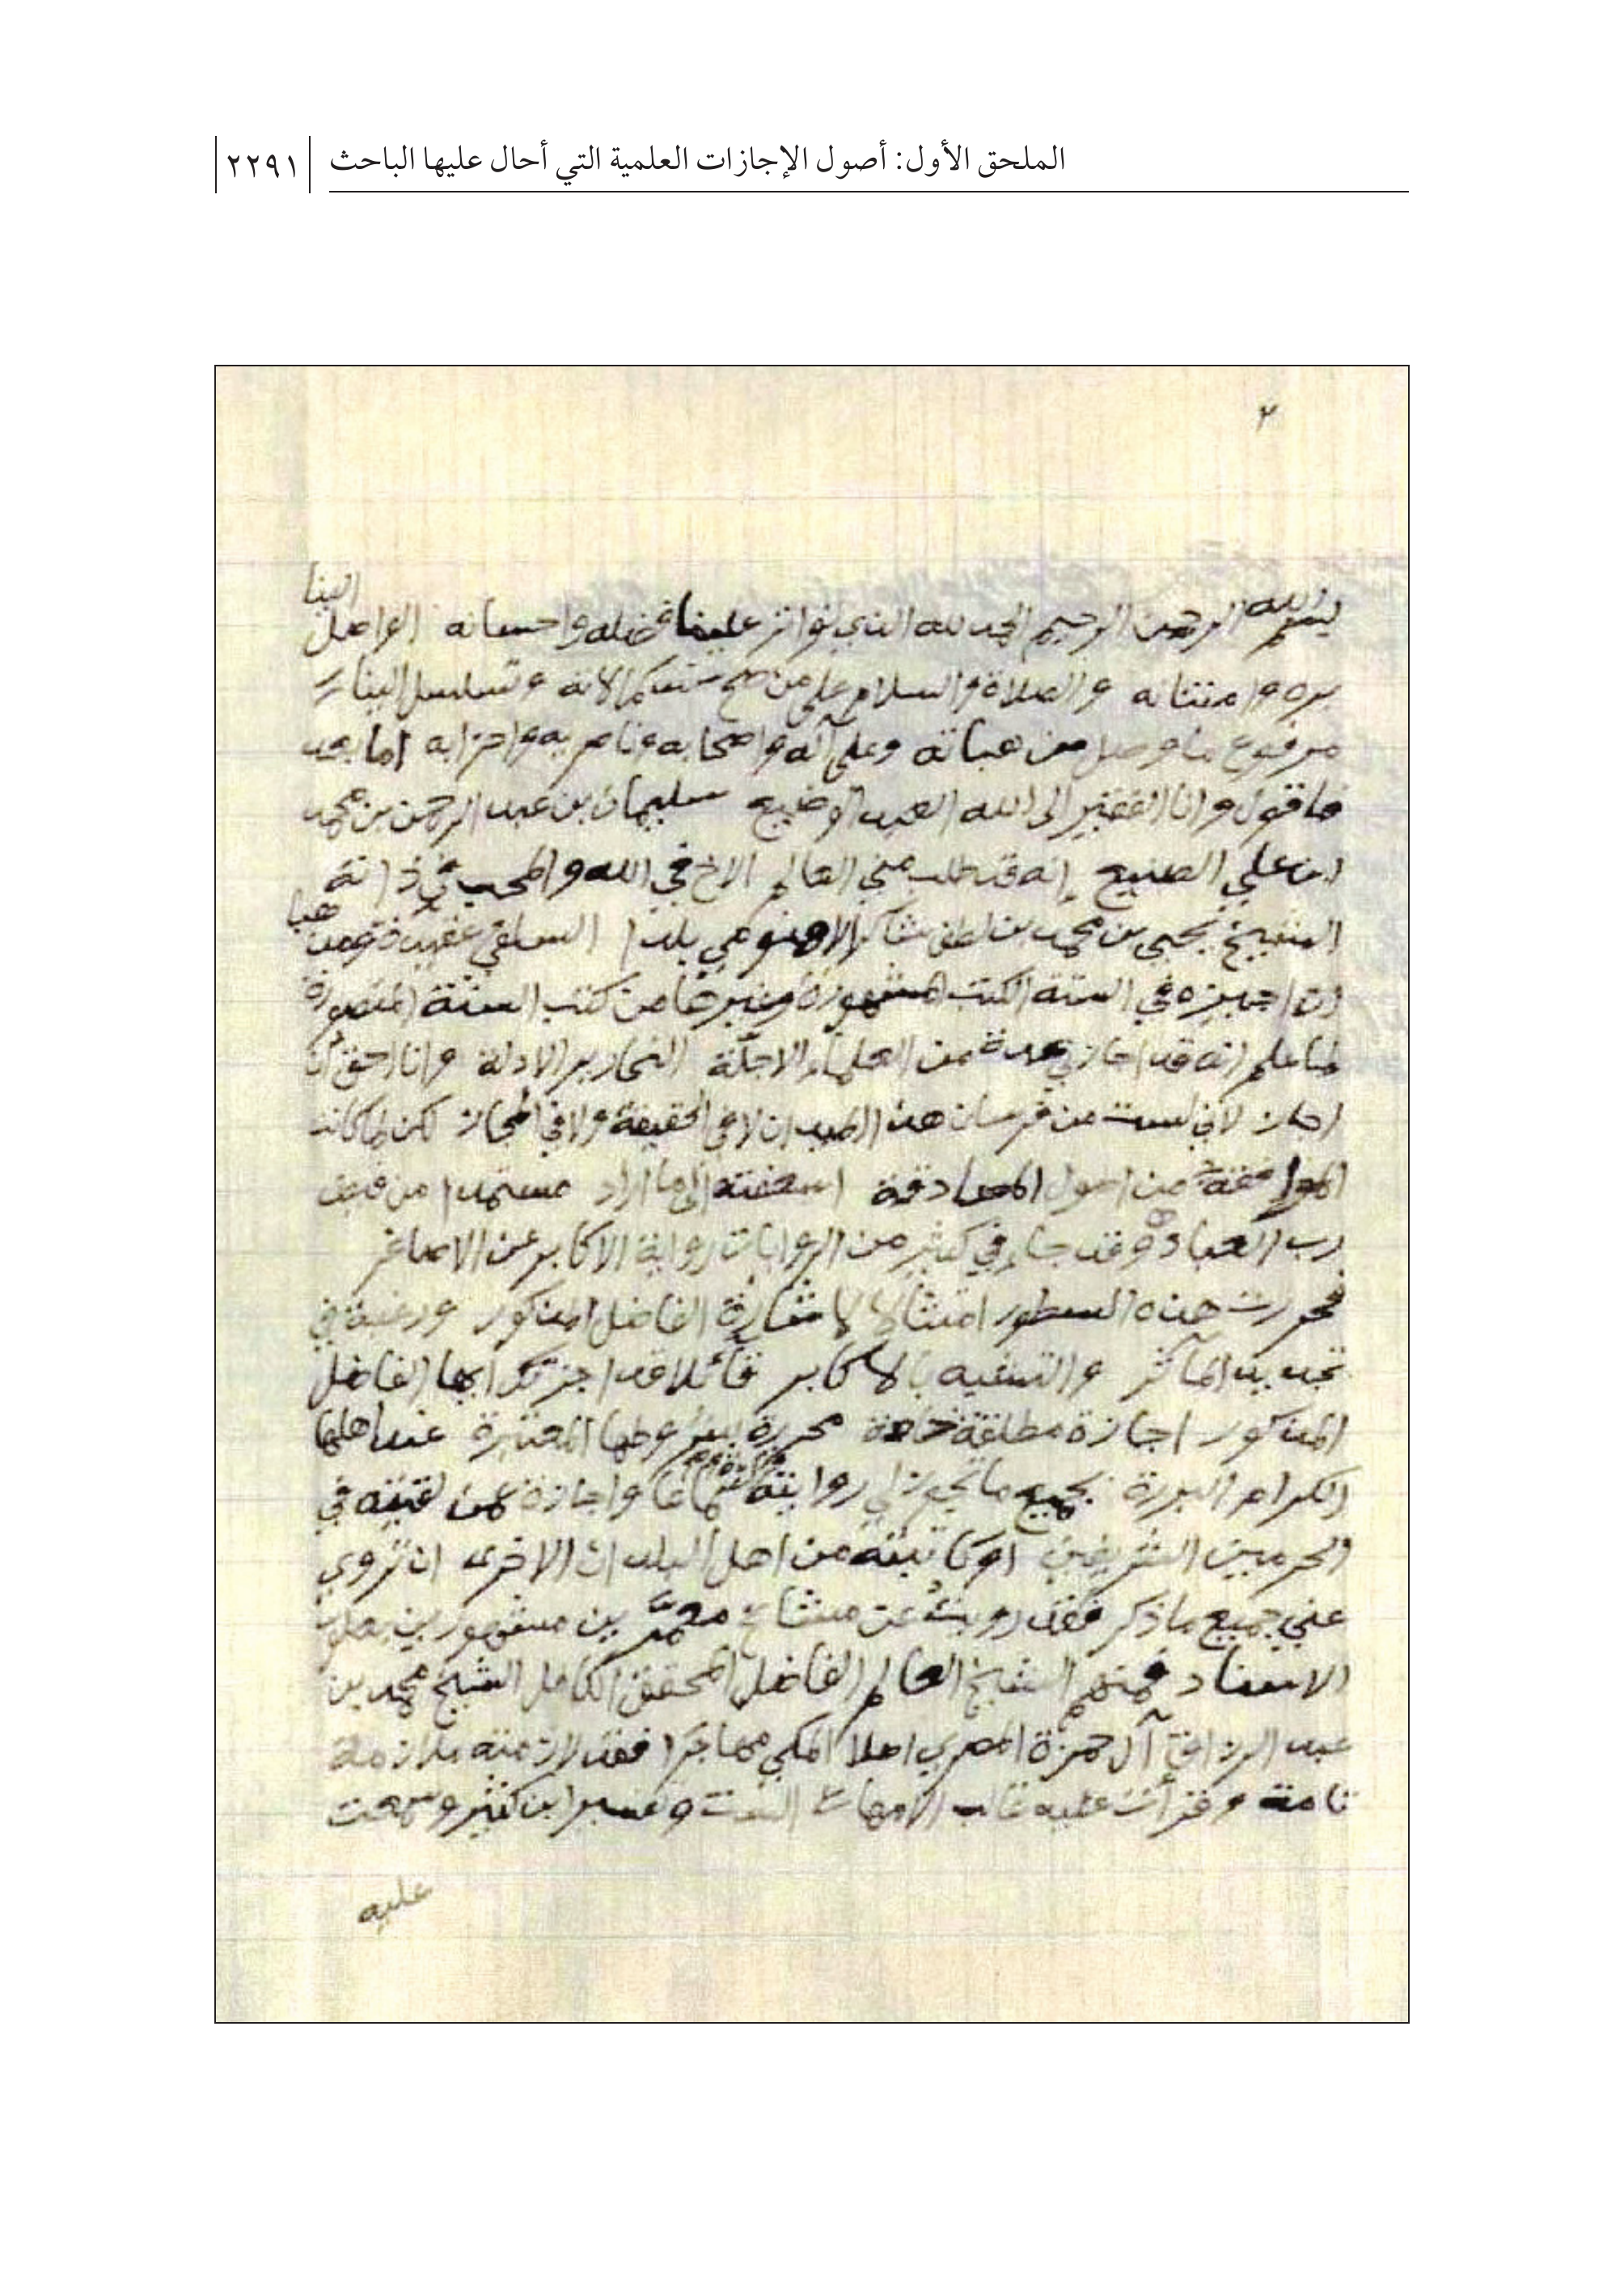 الملحق الأول: أصول الإجازات العلمية التي أحال عليها الباحث
٢٢٩١
٢
بسم الله الرحمن الرحيم الحمد لله الذي تواتر علينا فضله واحسانه الواصل الينا
بره وامتنانه والصلاة والسلام على من صح سند كمالاته وتسلسل الينا
مرفوع ما وصل من هباته وعلى آله واصحابه وناصريه واحزابه اما بعد
فاقول وانا الفقير الى الله العبد الوضيع سليمان بن عبد الرحمن بن محمد
ابن علي الصنيع إنه قد طلب مني العالم الاخ في الله والمحب في ذاته
الشيخ يحيى بن محمد بن لطف شاكر الاهنومي بلدا السلفي عقيدة ومذهبا
ان اجيزه في الستة الكتب المشهورة وغيرها من كتب السنة
فاعلم انه قد اجازني عدة من العلماء الاجلة النحارير الادلة وانا احق أن
اجاز لأني لست من فرسان هذا الميدان لا في الحقيقة ولا في المجاز لكن لما كانت
الموافقة من اصول المصادقة اسعفته إلى ما اراد مستمدا من فيض
رب العباد وقد جاء في كثير من الروايات رواية الاكابر عن الاصاغر
فحررت هذه السطور امتثالا لاشارة الفاضل المذكور ورغبة في
تجديد المآثر والتشبه بالاكابر قائلا قد اجزتك ايها الفاضل
المذكور اجازة مطلقة محررة بشروطها المعتبرة عند اهلها
الكرام البررة بجميع ما تجوز لي روايته سماعا واجازة عمن لقيته في
الحرمين الشريفين أو كاتبته من اهل البلدان الاخرى ان تروي
عني جميع ما ذكر فقد رويت عن مشائخ معمرين مشهورين بعلو
الاسناد فمنهم الشيخ العالم الفاضل المحقق الكامل الشيخ محمد بن
عبد الرزاق آل حمزة المصري اصلا المكي مهاجرا فقد لازمته ملازمة
تامة وقرأت عليه غالب الامهات الست وتفسير ابن كثير وسمعت
عليه